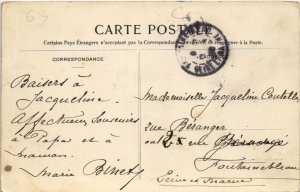 63
CARTE POSTALE
Certains Pays Étrangers n'acceptant pas la Correspondance
à la Poste.
CORRESPONDANCE
Baisers à
Jacqueline.
Affectueux Souvenirs
à Papa et à
Maman
Marie Binet
Mademoiselle Jacqueline
rue Béranger
ou rue
Fontainebleau
Seine et Marne